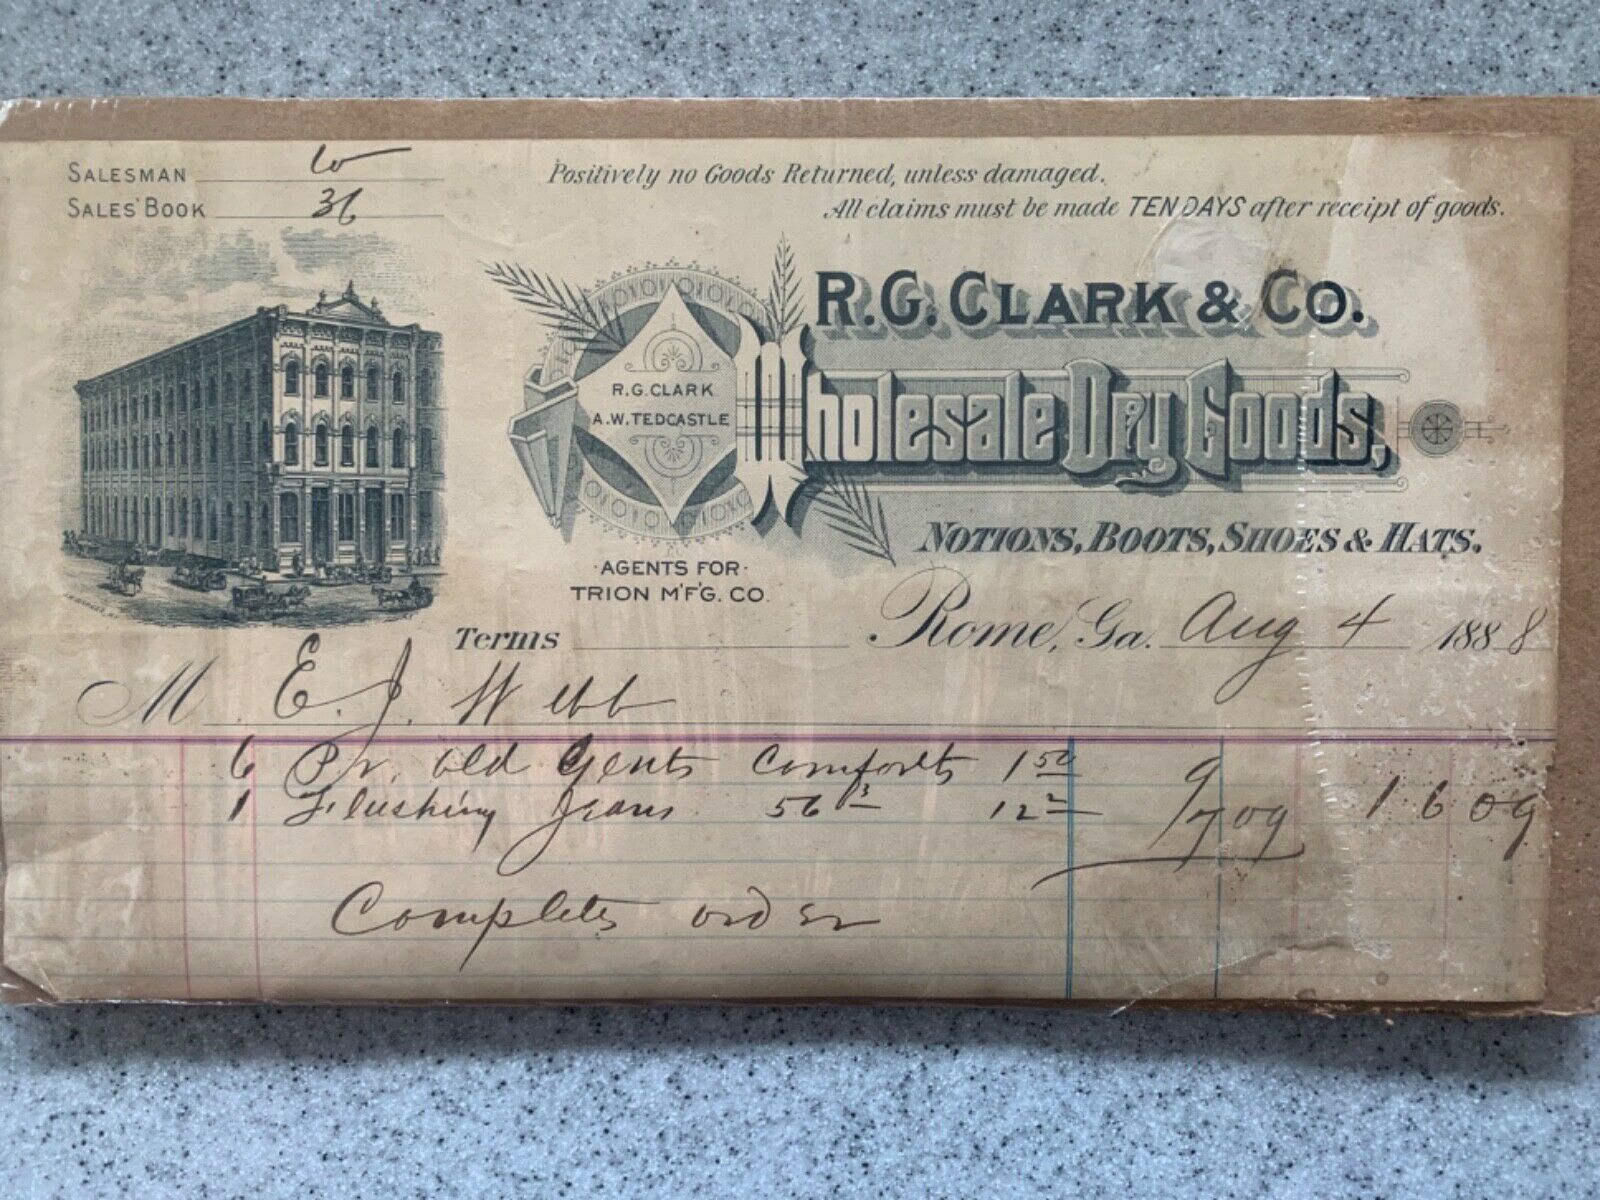 SALESMAN Co
SALES' BOOK 36
Positively no Goods Returned, unless damaged.
All claims must be made TEN DAYS after receipt of goods.
R.G. CLARK & CO.
R.G. CLARK
A.W. TEDCASTLE
Wholesale Dry Goods,
NOTIONS, BOOTS, SHOES & HATS.
·AGENTS FOR·
TRION M'F'G. CO.
Terms
Rome, Ga. Aug 4 1888
M E. J. Webb
6 Pr. old Gents Comforts 1 50 9
1 Flushing Jeans 56 3 12 2 7 09 16 09
Complete order